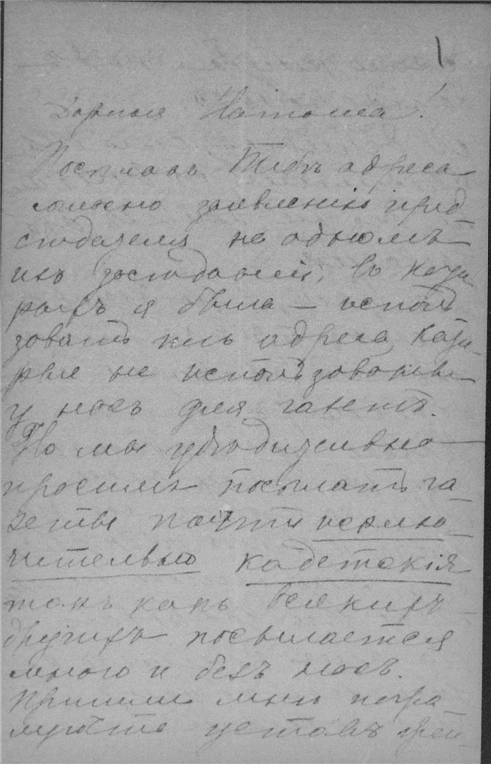 1
Дорогая Наташа!
Посылаю Тебѣ адреса
согласно заявленію пред
сѣдателя на одномъ
изъ засѣданій, въ кото
рыхъ я была — исполь
зовать тѣ адреса кото
рые не использованы
у насъ для газетъ.
Но мы убѣдительно
просимъ посылать га
зеты почти исклю
чительно кадетскія
такъ какъ всякихъ
другихъ посылается
много и безъ насъ.
Пришли мнѣ пожа
луйста уставъ